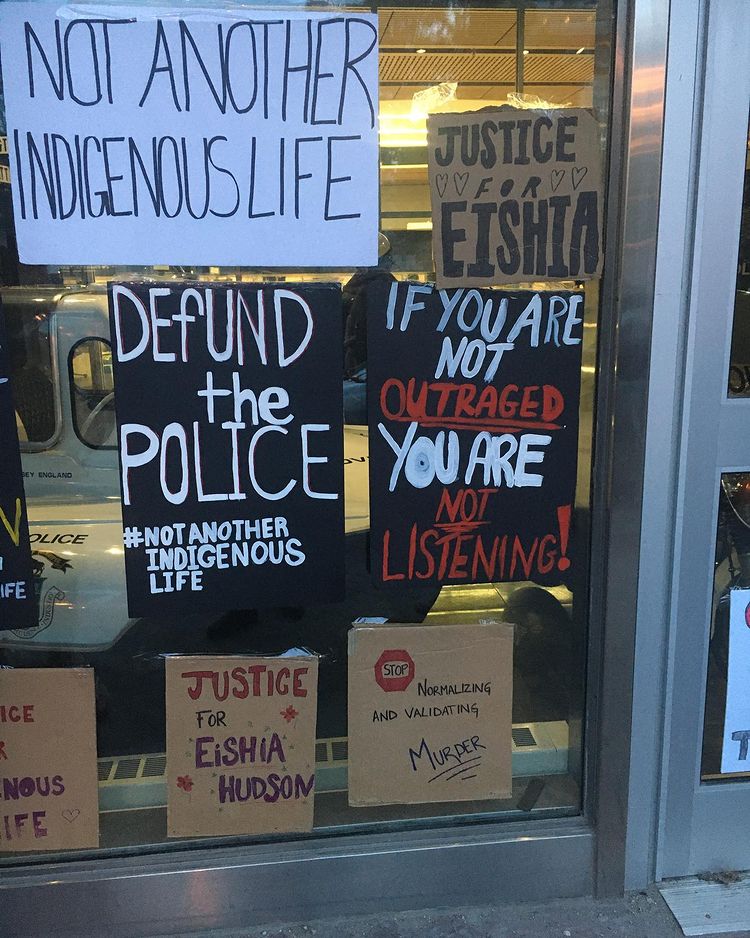 NOT ANOTHER
INDIGENOUS LIFE
JUSTICE
FOR
EISHIA
DEFUND
the
POLICE
#NOTANOTHER
INDIGENOUS
LIFE
IF YOU ARE
NOT
OUTRAGED
YOU ARE
NOT
LISTENING!
SEY ENGLAND
OLICE
IFE
ICE
R
NOUS
IFE
JUSTICE
FOR
EISHIA
HUDSON
STOP
NORMALIZING
AND VALIDATING
MURDER